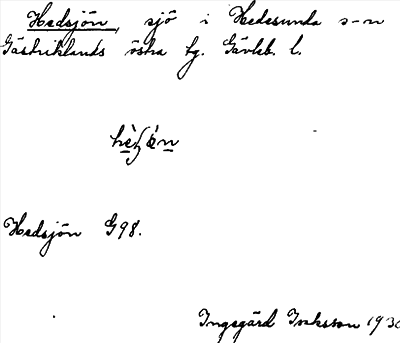 Hedsjön, sjö i Hedesunda s-n
Gästriklands östra tg. Gävleb. l.
Hedsjön G98.
Ingegärd Isaksson 1930